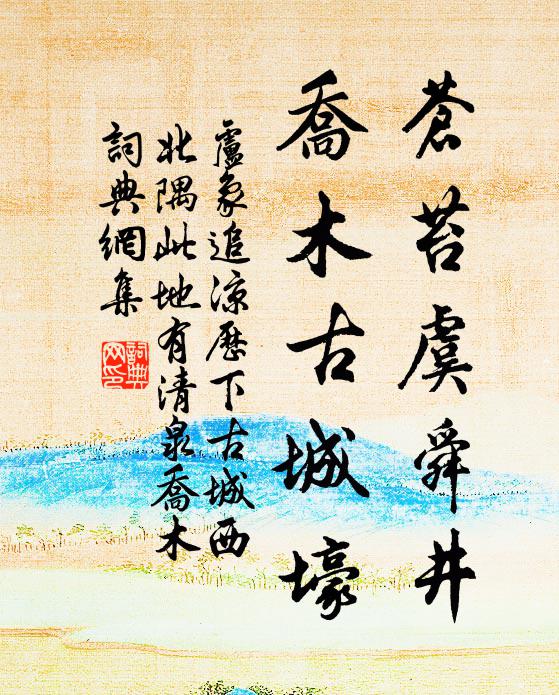 蒼苔虞舜井
喬木古城壕
盧象追涼歷下古城西
北隅此地有清泉喬木
詞典網集
詞典
网印